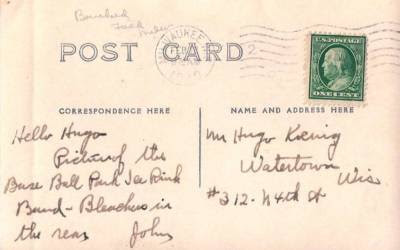 Bou
Jack
POST CARD
MILWAUKEE
FEB
2
U.S. POSTAGE
ONE CENT
CORRESPONDENCE HERE
NAME AND ADDRESS HERE
Hello Hugo
Picture of the
Base Ball Park Ice Rink
Band - Bleachers in
the rear John
Mr Hugo Koenig
Watertown
Wis
#312 - N 4th St